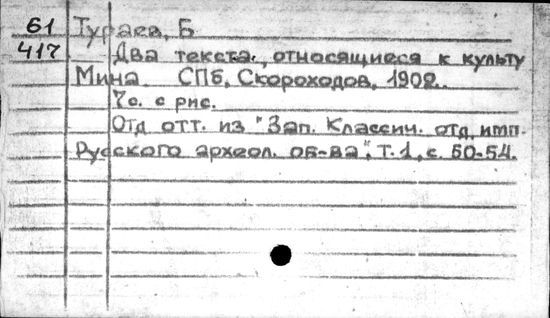 61 Тураев, Б
417 Два текста, относящиеся к культу
Мина СПб, Скороходов, 1902.
7с. с рис.
Отд отт. из "Зап. Классич. отд имп.
Русского археол. об-ва", Т.1, с. 50-54.